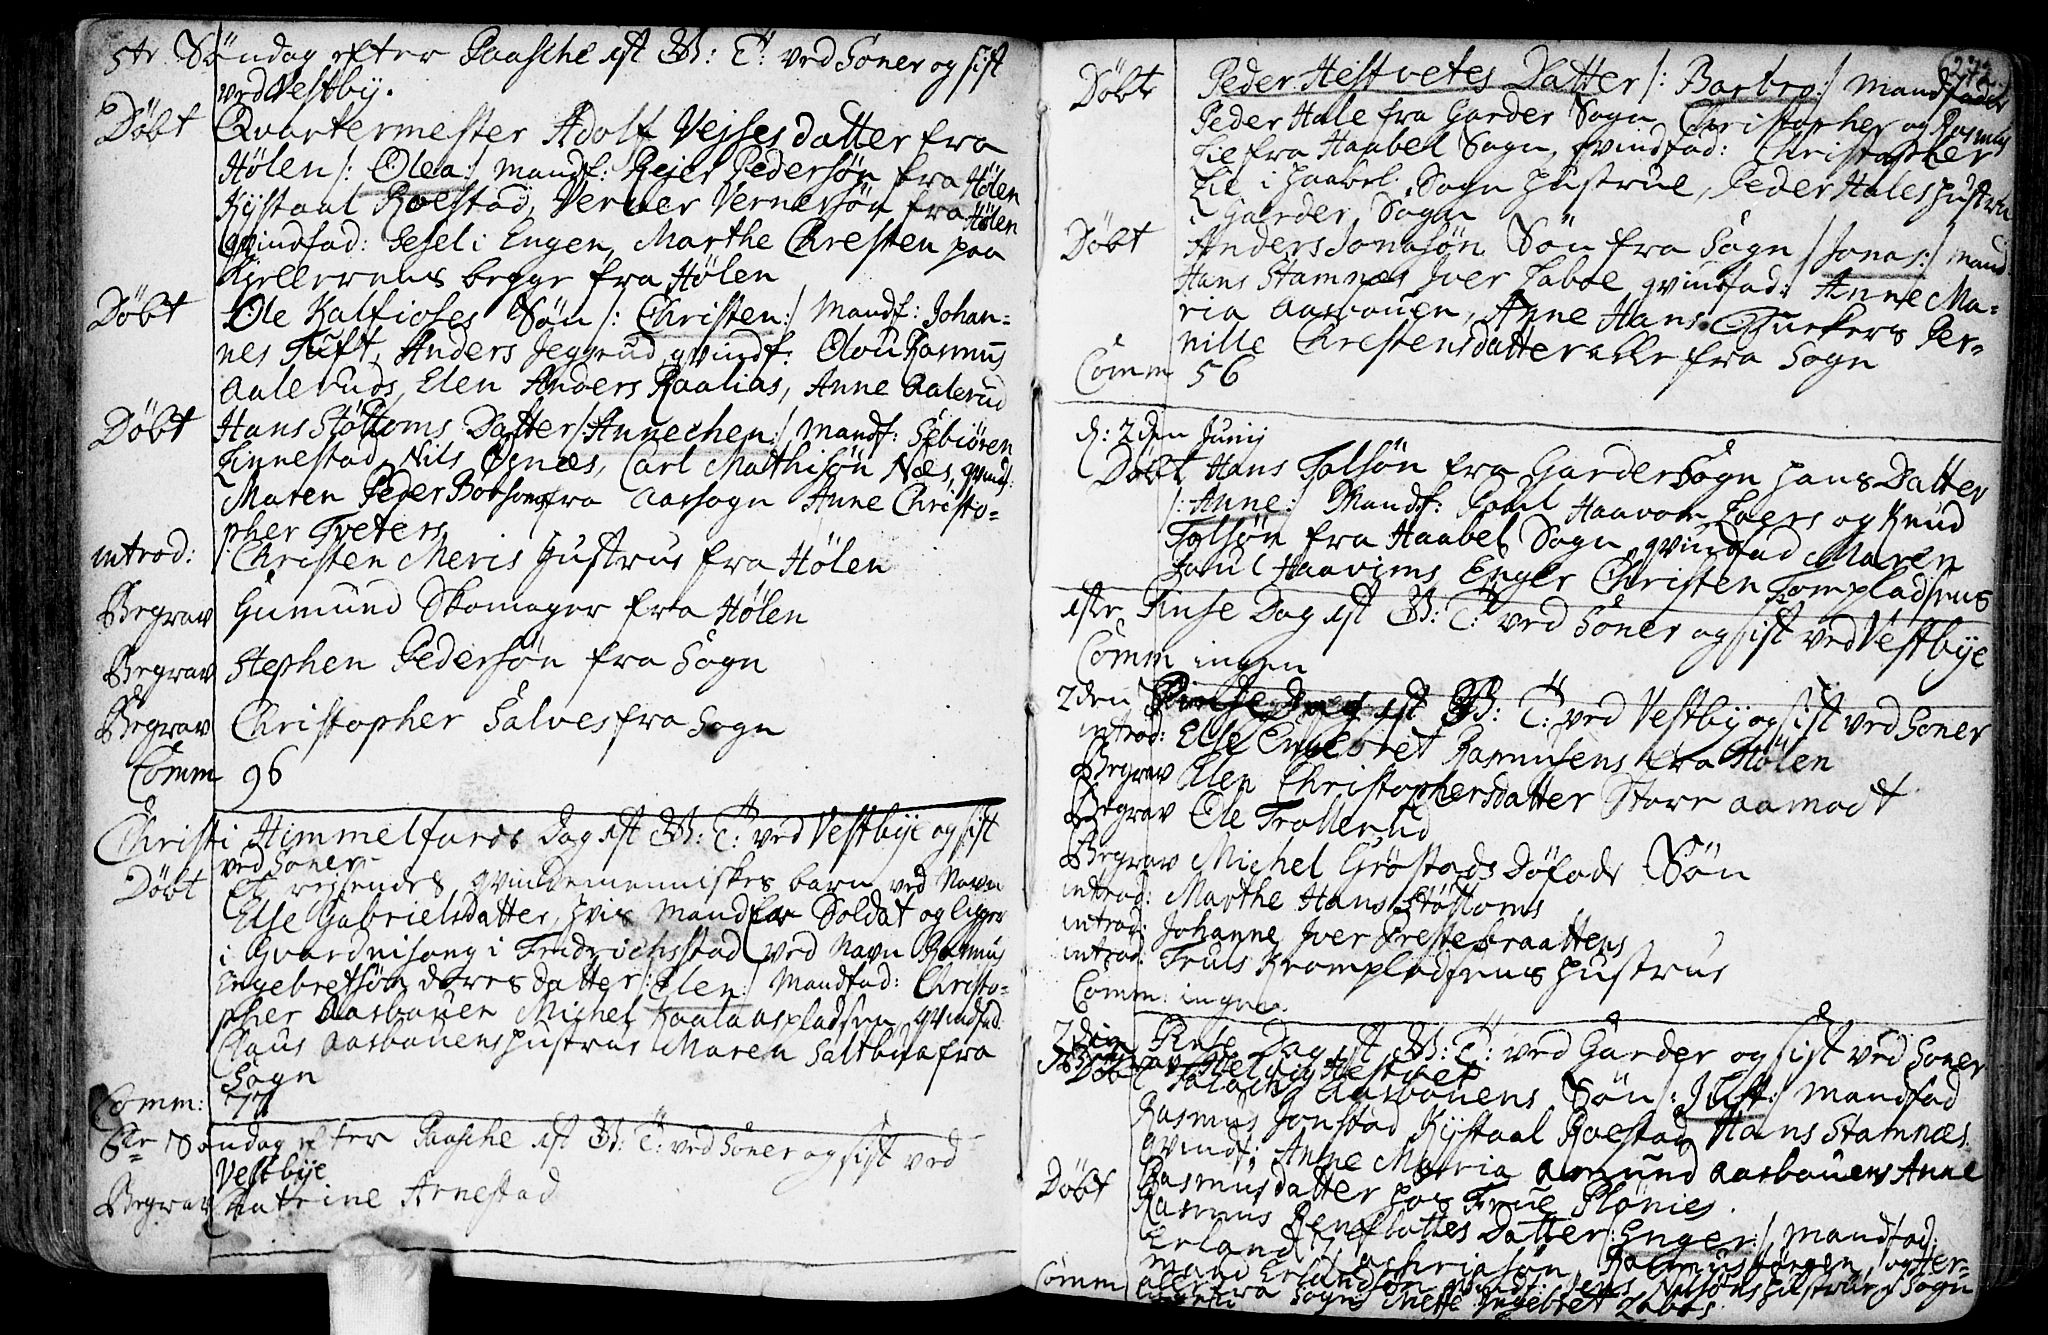 5te Söndag efter Paasche ist B: T: ved Soner og sist
ved Vestby.
Döbt Qvartermester Adolf Vejses datter fra
Hølen /: Olea :/ Mandf: Reier Pedersön fra Hølen
Kystaal Roestad, Verner Vernersön fra Hølen
qvindfad: Sesel i Engen, Marthe Christen paa
Kjellerens begge fra Hølen
Döbt Ole Kalfioses Sön /: Christen :/ Mandf: Johan=
nes Tuft, Anders Jeggrud qvindf: Olou Rasmus
Aaleruds, Elen Anders Raalias, Anne Aalerud
Döbt Hans Stöttoms Datter /: Annechen :/ Mandf: Sebiören
Finnestad, Nils Ösnæs, Carl Mathisön Næs, qvindf:
Maren Peder Botsons fra Aassogn Anne Christo=
pher Tveters
introd: Christen Meris Hustrue fra Hølen
Begrav Gumund Skomager fra Hølen
Begrav Stephen Pedersön fra Sogn
Begrav Christopher Salves fra Sogn
Comm 96
Christi Himmelfards Dag ist B: T: ved Vestbye og sist
ved Soner
Döbt Et reisendes qvindemenniskes barn ved Navn
Else Gabrielsdatter, hvis Mand er Soldat og ligger
i Gvarnisong i Fridrichsstad ved Navn Rasmus
Engebretsön deres datter /: Elen :/ Mandfad: Christo=
pher Aasbouen Michel Kaalaaspladsen, qvindfad:
Claus Aasbouens hustrue Maren Saltbua fra
Sogn
Comm: 77
6te Söndag efter Paasche ist B: T: ved Soner og sist ved
Vestbye
Begrav Katrine Arnestad
272
Döbt Peder Hestvetes Datter /: Barbro :/ Mandfader
Peder Hale fra Garder Sogn, Christopher og Rasmus
Lie fra Haabel Sogn, qvindfad: Christopher
Lie i Haabel Sogn hustrue, Peder Hales hustrue
i Garder Sogn
Döbt Anders Jonasön Sön fra Sogn /: Jonas :/ Mand
Hans Stamnes Iver Laboe qvindfad: Anne Ma=
ria Aasbouen, Anne Hans Per=
nille Christensdatter alle fra Sogn
Comm 56
d: 2den Junij
Döbt Hans Tolsön fra Garder Sogn hans Datter
/: Anne :/ Mandf: Poul Haavom og Knud
Tolsön fra Haabel Sogn qvindfad Maren
Poul Haavims Enger Christen Tompladsens
1ste Pinse Dag ist B: T: ved Soner og sist ved Vestbye
Comm ingen
2den Pinse Dag ist B: T: ved Vestby og sist ved Soner
introd: Else Engebret Rasmusens fra Hølen
Begrav Elen Christophersdatter Store Aamodt
Begrav Ole Trollerud
Begrav Michel Gröstads Döfode Sön
introd: Marthe Hans Stöttoms
introd: Johanne Iver Prestebraattens
introd: Truls Krompladsens hustrue
Comm: ingen.
2den Pinse Dag ist B: T: ved Garder og sist ved Soner
Begrav Helvig Hestvet
Döbt Aasbouens Sön /: Just :/ Mandfad
Rasmus Jonstad Kystaal Roestad Hans Stamnæs
qvindf: Anne Maria Amund Aasbouens Anne
Rasmusdatter hos Frue Plönies.
Döbt Rasmus Datter /: Enger :/ Mandfad:
Erland Zachriasön, Rasmus og Her=
mand Erlandsön qvindf: Jens Nilsöns hustrue i Sogn
Mette Ingebret Labos
alle fra Sogn
Comm